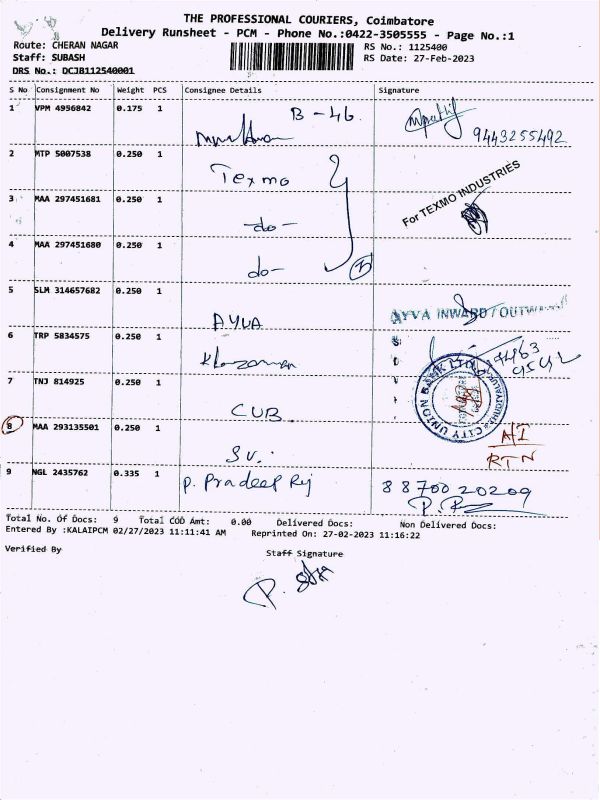 THE PROFESSIONAL COURIERS, Coimbatore
Delivery Runsheet - PCM - Phone No.:0422-3505555 - Page No.:1
Route: CHERAN NAGAR
RS No.: 1125400
Staff: SUBASH
RS Date: 27-Feb-2023
DRS No.: DCJ8112540001
S No Consignment No Weight PCS Consignee Details Signature
1 VPM 4956842 0.175 1 B-46.
9443255492
2 MTP 5007538 0.250 1 Texmo
For TEXMO INDUSTRIES
3 MAA 297451681 0.250 1 -do-
4 MAA 297451680 0.250 1 do-
5 SLM 314657682 0.250 1 AYVA
AYVA INWARD / OUTWARD
6 TRP 5834575 0.250 1
7 TNJ 814925 0.250 1 CUB
CITY UNION BANK LTD
8 MAA 293135501 0.250 1 SV.
A/I
RTN
9 NGL 2435762 0.335 1 P. Pradeep Rj 8870020209
Total No. Of Docs: 9 Total COD Amt: 0.00 Delivered Docs: Non Delivered Docs:
Entered By :KALAIPCM 02/27/2023 11:11:41 AM Reprinted On: 27-02-2023 11:16:22
Verified By
Staff Signature